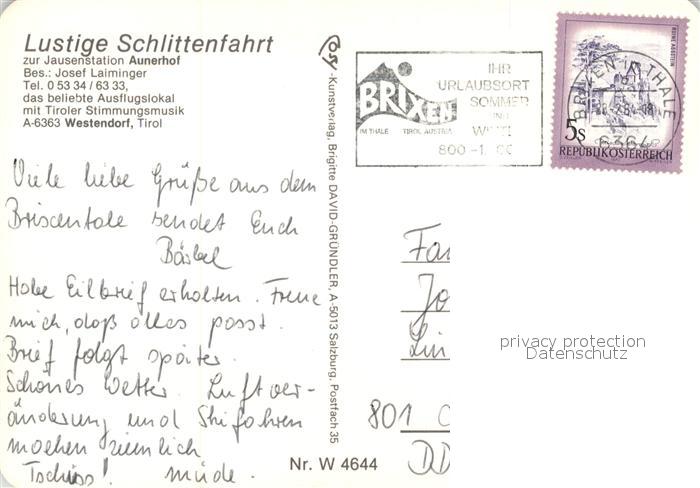 Lustige Schlittenfahrt
zur Jausenstation Aunerhof
Bes.: Josef Laiminger
Tel. 0 53 34 / 63 33,
das beliebte Ausflugslokal
mit Tiroler Stimmungsmusik
A-6363 Westendorf, Tirol
Viele liebe Grüße aus dem
Brixentale sendet Euch
Bärbel
Habe Eilbrief erhalten. Freue
mich, daß alles passt.
Brief folgt später.
Schönes Wetter. Luftver-
änderung und Skifahren
machen ziemlich
Tschüss! müde.
Cosy-Kunstverlag, Brigitte DAVID-GRÜNDLER, A-5013 Salzburg, Postfach 35
Nr. W 4644
BRIXEN
IM THALE TIROL AUSTRIA
IHR
URLAUBSORT
SOMMER
800 -1
BRIXEN IM THALE
6364
5s
REPUBLIK ÖSTERREICH
Fa
Jo
Lin
801
DD
privacy protection
Datenschutz